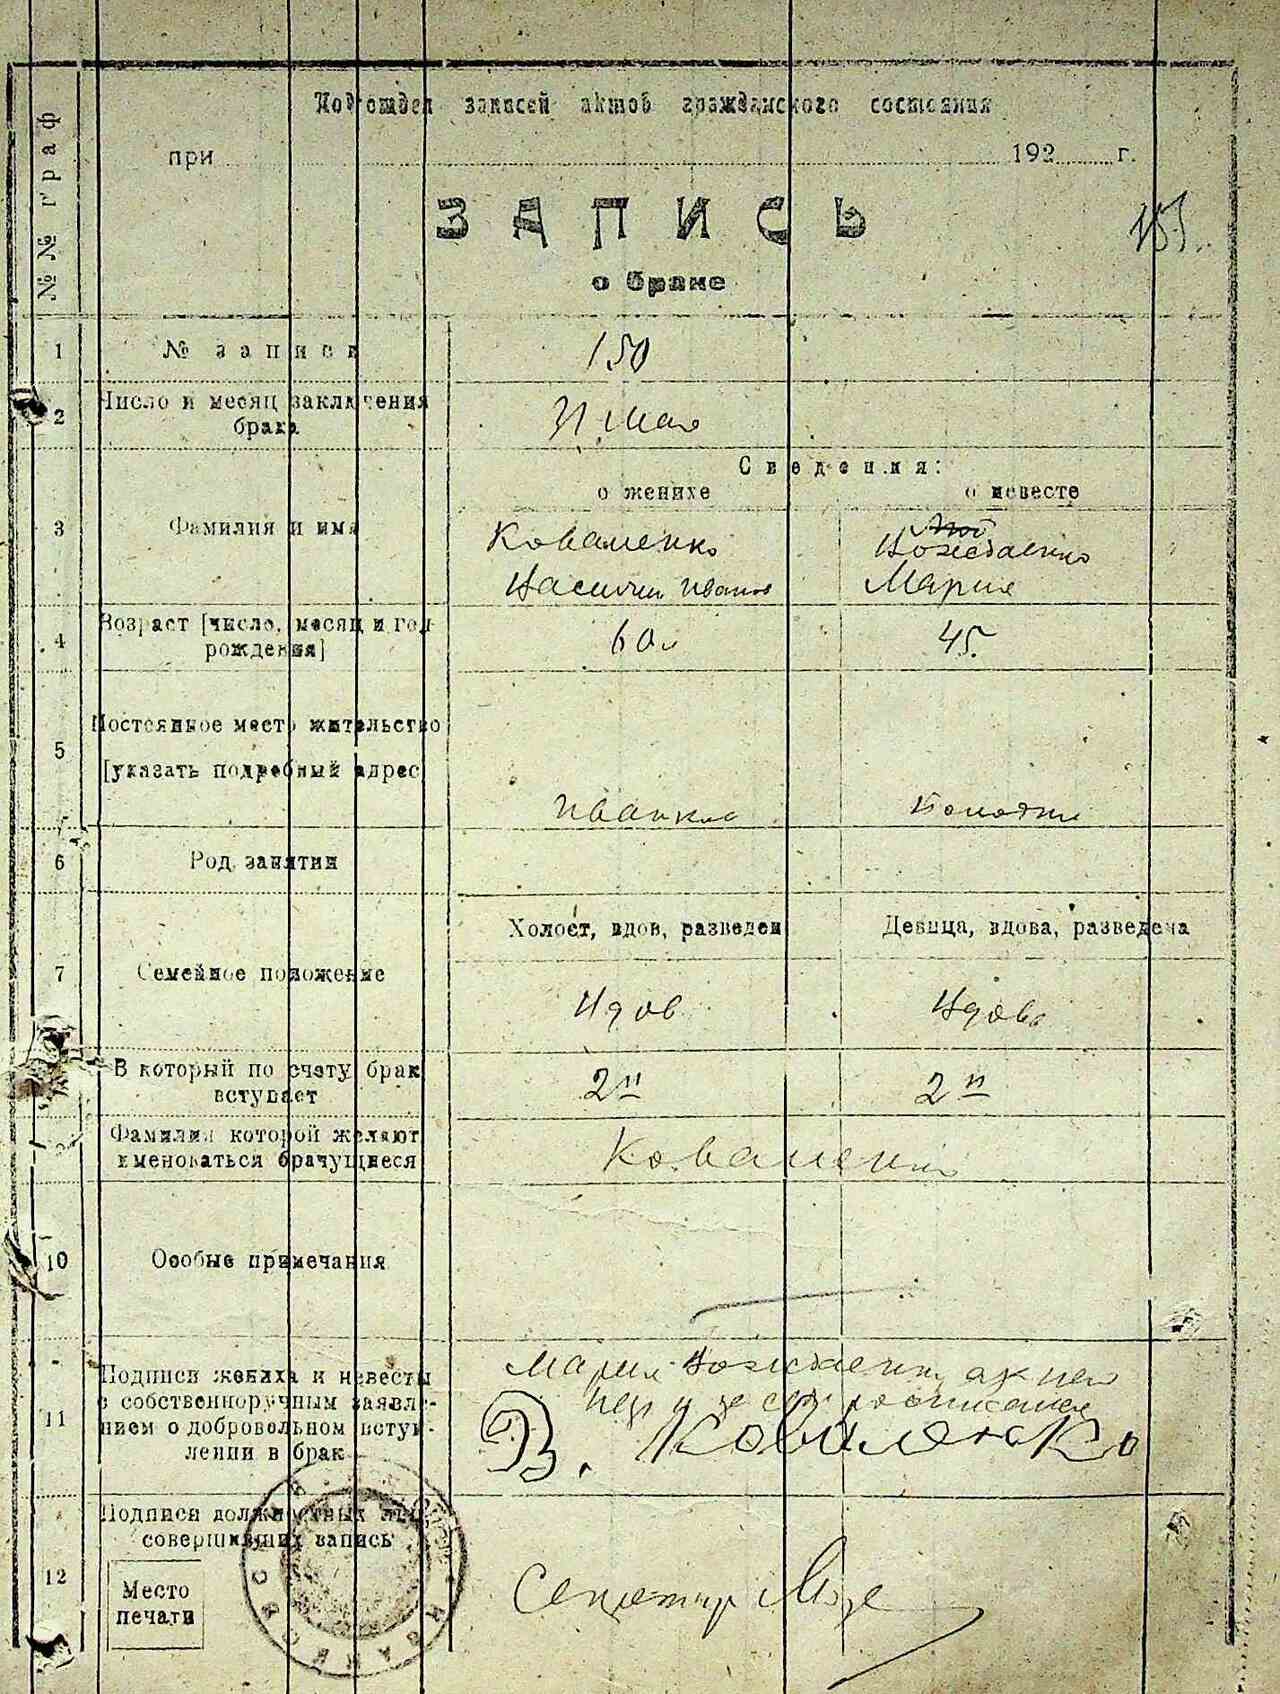 Подотдел записей актов гражданского состояния
при 192 г.
№№ граф
ЗАПИСЬ
о браке
1 № записи 150
2 Число и месяц заключения
брака
31 мая
Сведения:
о женихе о невесте
3 Фамилия и имя
Коваленко
Василий Иванов Мария
4 Возраст [число, месяц и год
рождения]
60 л 45
5 Постоянное место жительство
[указать подробный адрес]
Иванков
6 Род занятий
Холост, вдов, разведен Девица, вдова, разведена
7 Семейное положение
Вдов Вдова
В который по счету брак
вступает
2й 2й
Фамилия которой желают
именоваться брачущиеся
Коваленко
10 Особые примечания
11 Подписи жениха и невесты
с собственноручным заявле-
нием о добровольном вступ-
лении в брак
Мария
В. Коваленко
12 Подписи должностных лиц
совершивших запись
Место
печати
Секретарь